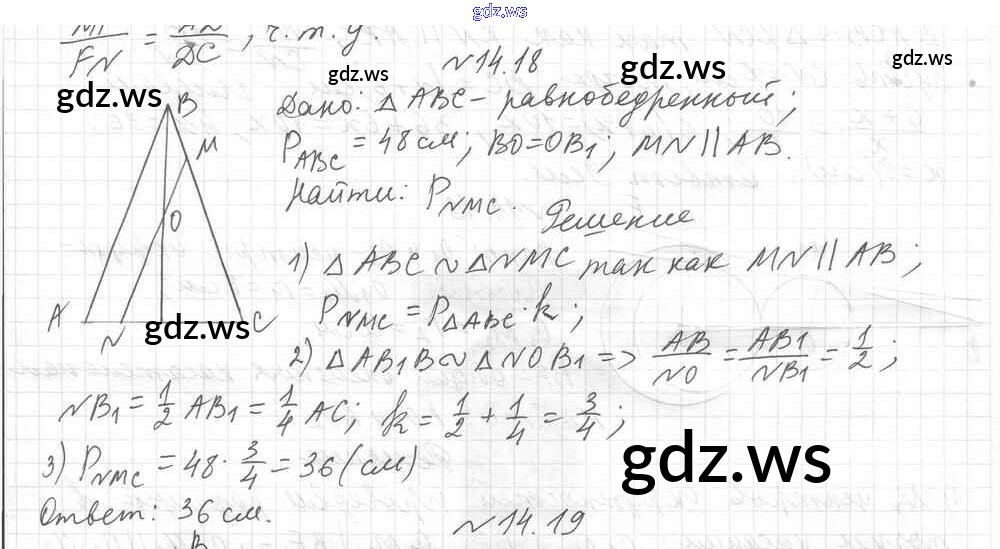 gdz.ws
MF/FN = AN/DC, ч.т.д.
№14.18
gdz.ws gdz.ws gdz.ws
Дано: △ABC - равнобедренный;
P_ABC = 48 см; BO=OB₁; MN||AB.
Найти: P_NMC.
Решение
1) △ABC ~ △NMC так как MN||AB;
P_NMC = P_△ABC · k;
B
M
O
A
N
C
gdz.ws gdz.ws
2) △AB₁B ~ △NOB₁ => AB/NO = AB1/NB1 = 1/2;
NB₁ = 1/2 AB₁ = 1/4 AC; k = 1/2 + 1/4 = 3/4;
3) P_NMC = 48 · 3/4 = 36 (см)
gdz.ws
Ответ: 36 см.
№14.19
B